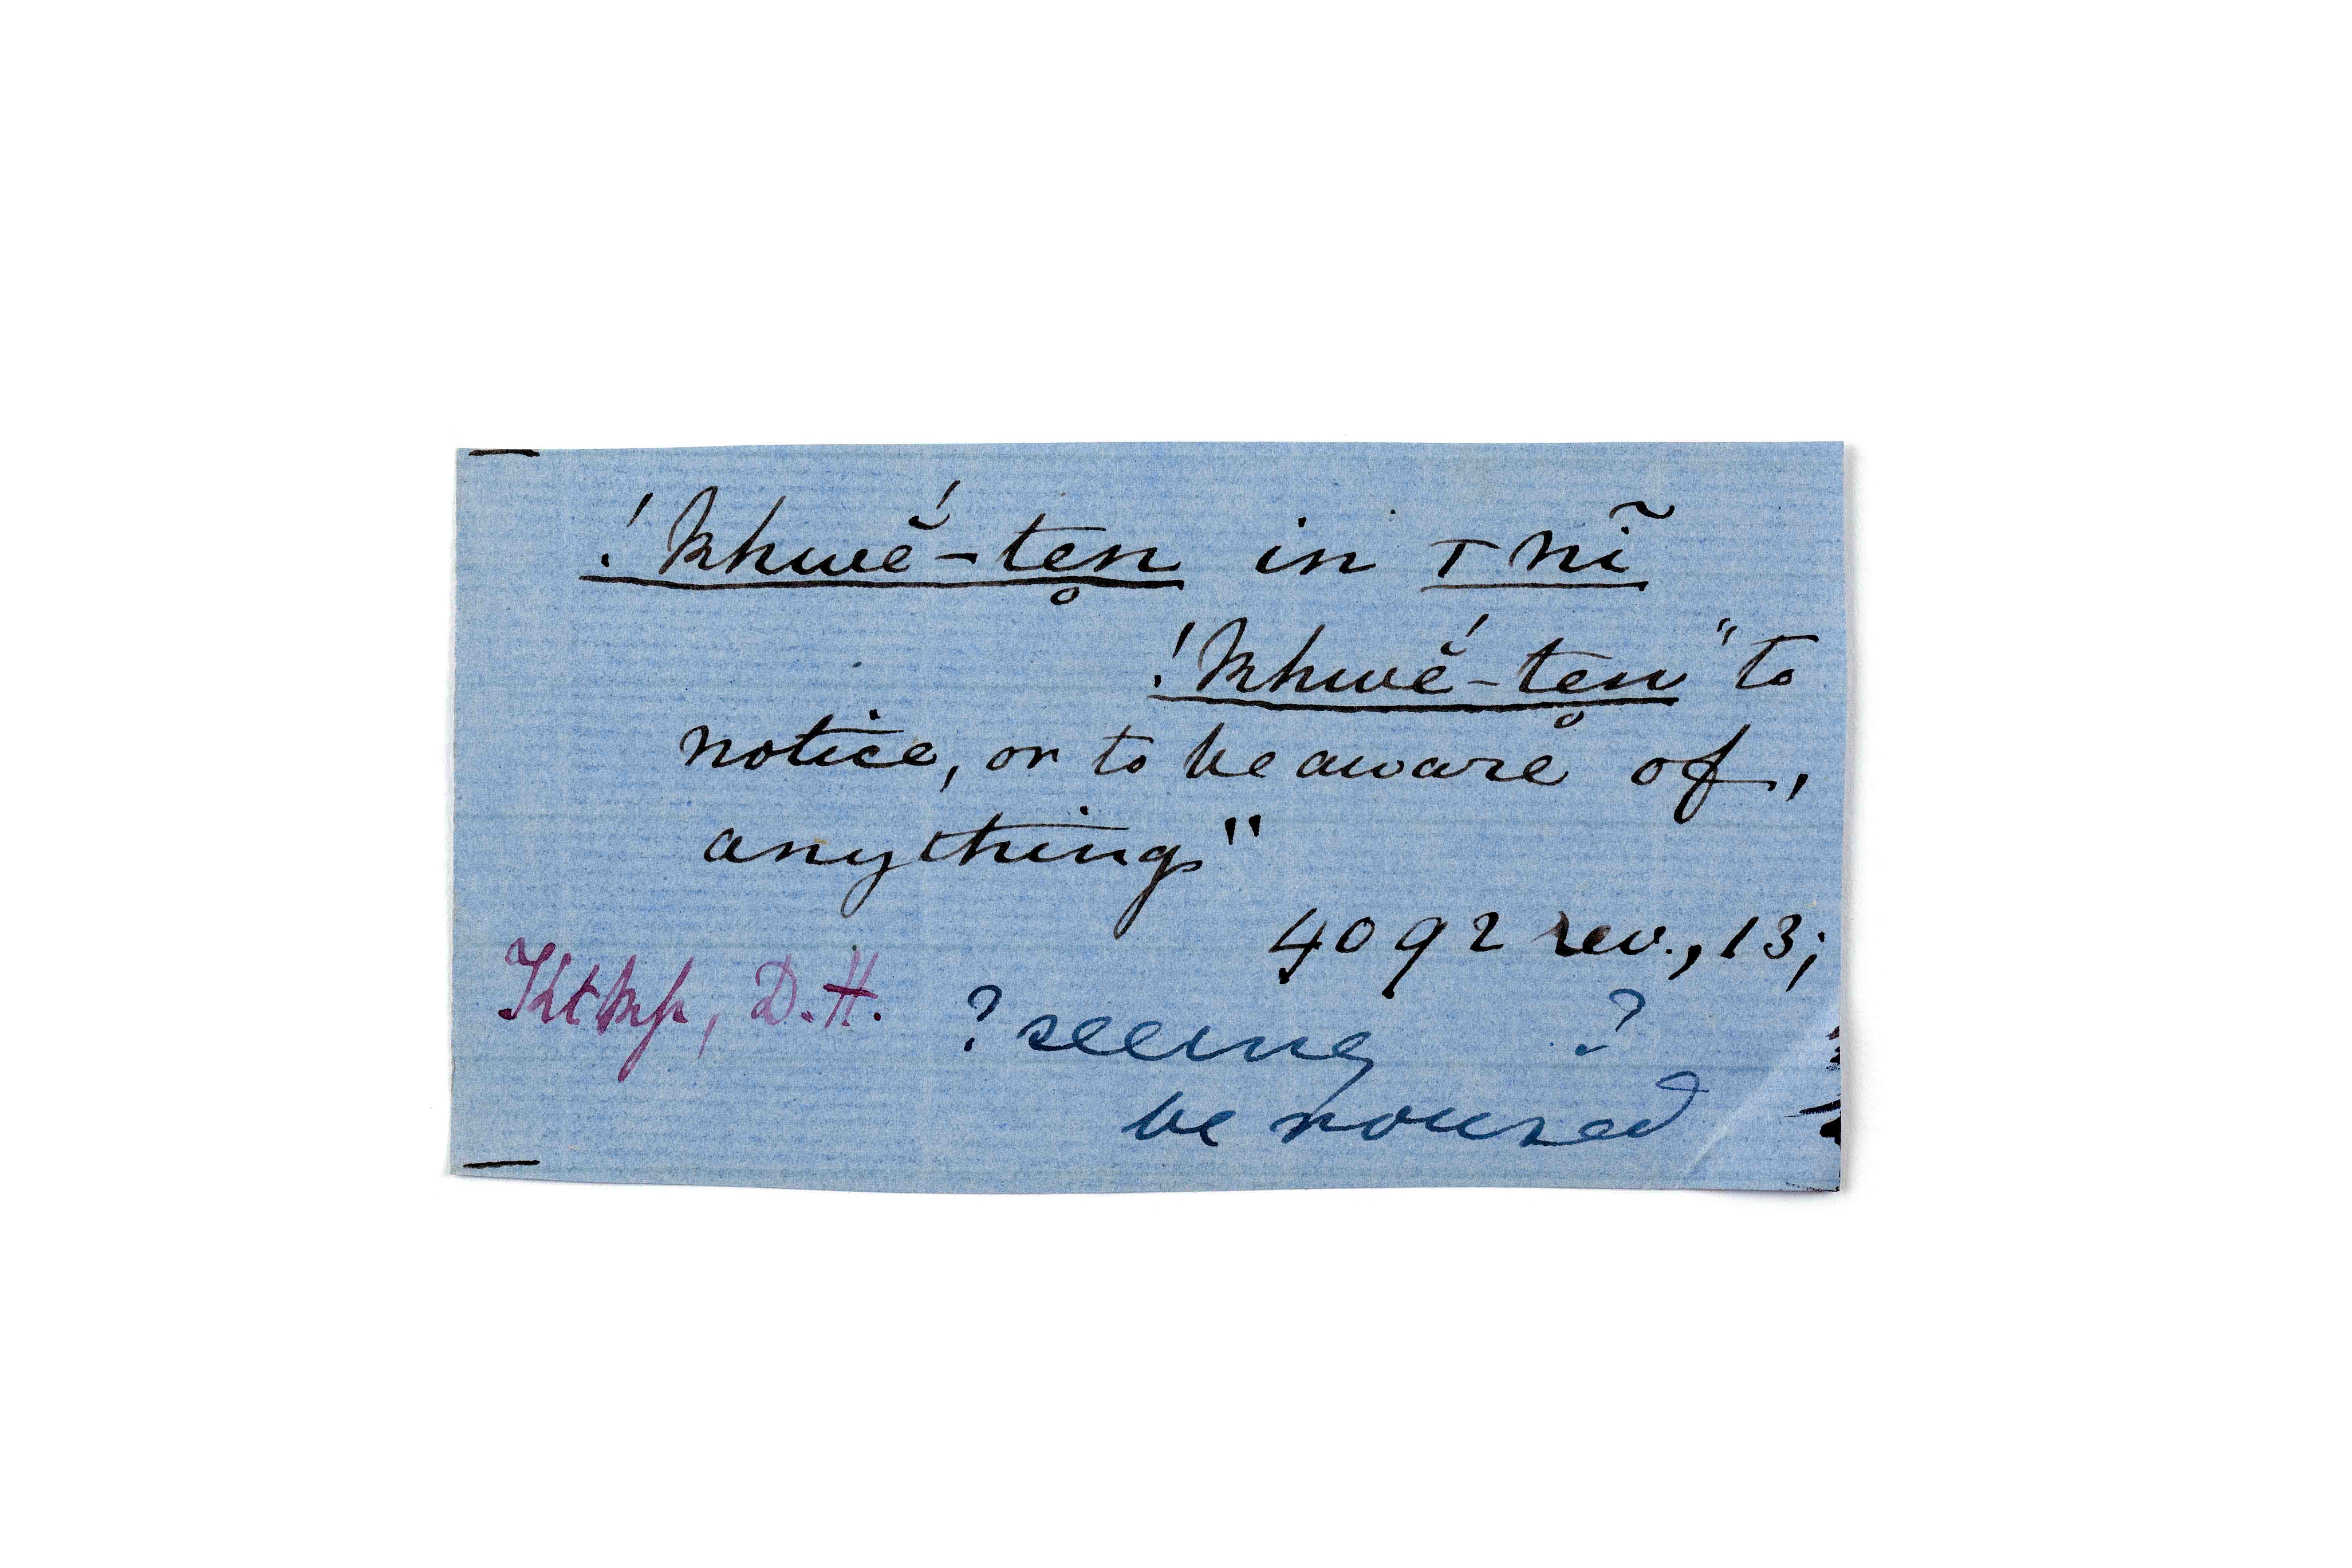 !khwĕ́-tẹn̥ in ⊤nĩ
!khwĕ́-tẹn̥ "to
notice, or to be aware of,
anything"
4092 rev., 13;
Ktkp, D.H. ? seeing ?
be roused